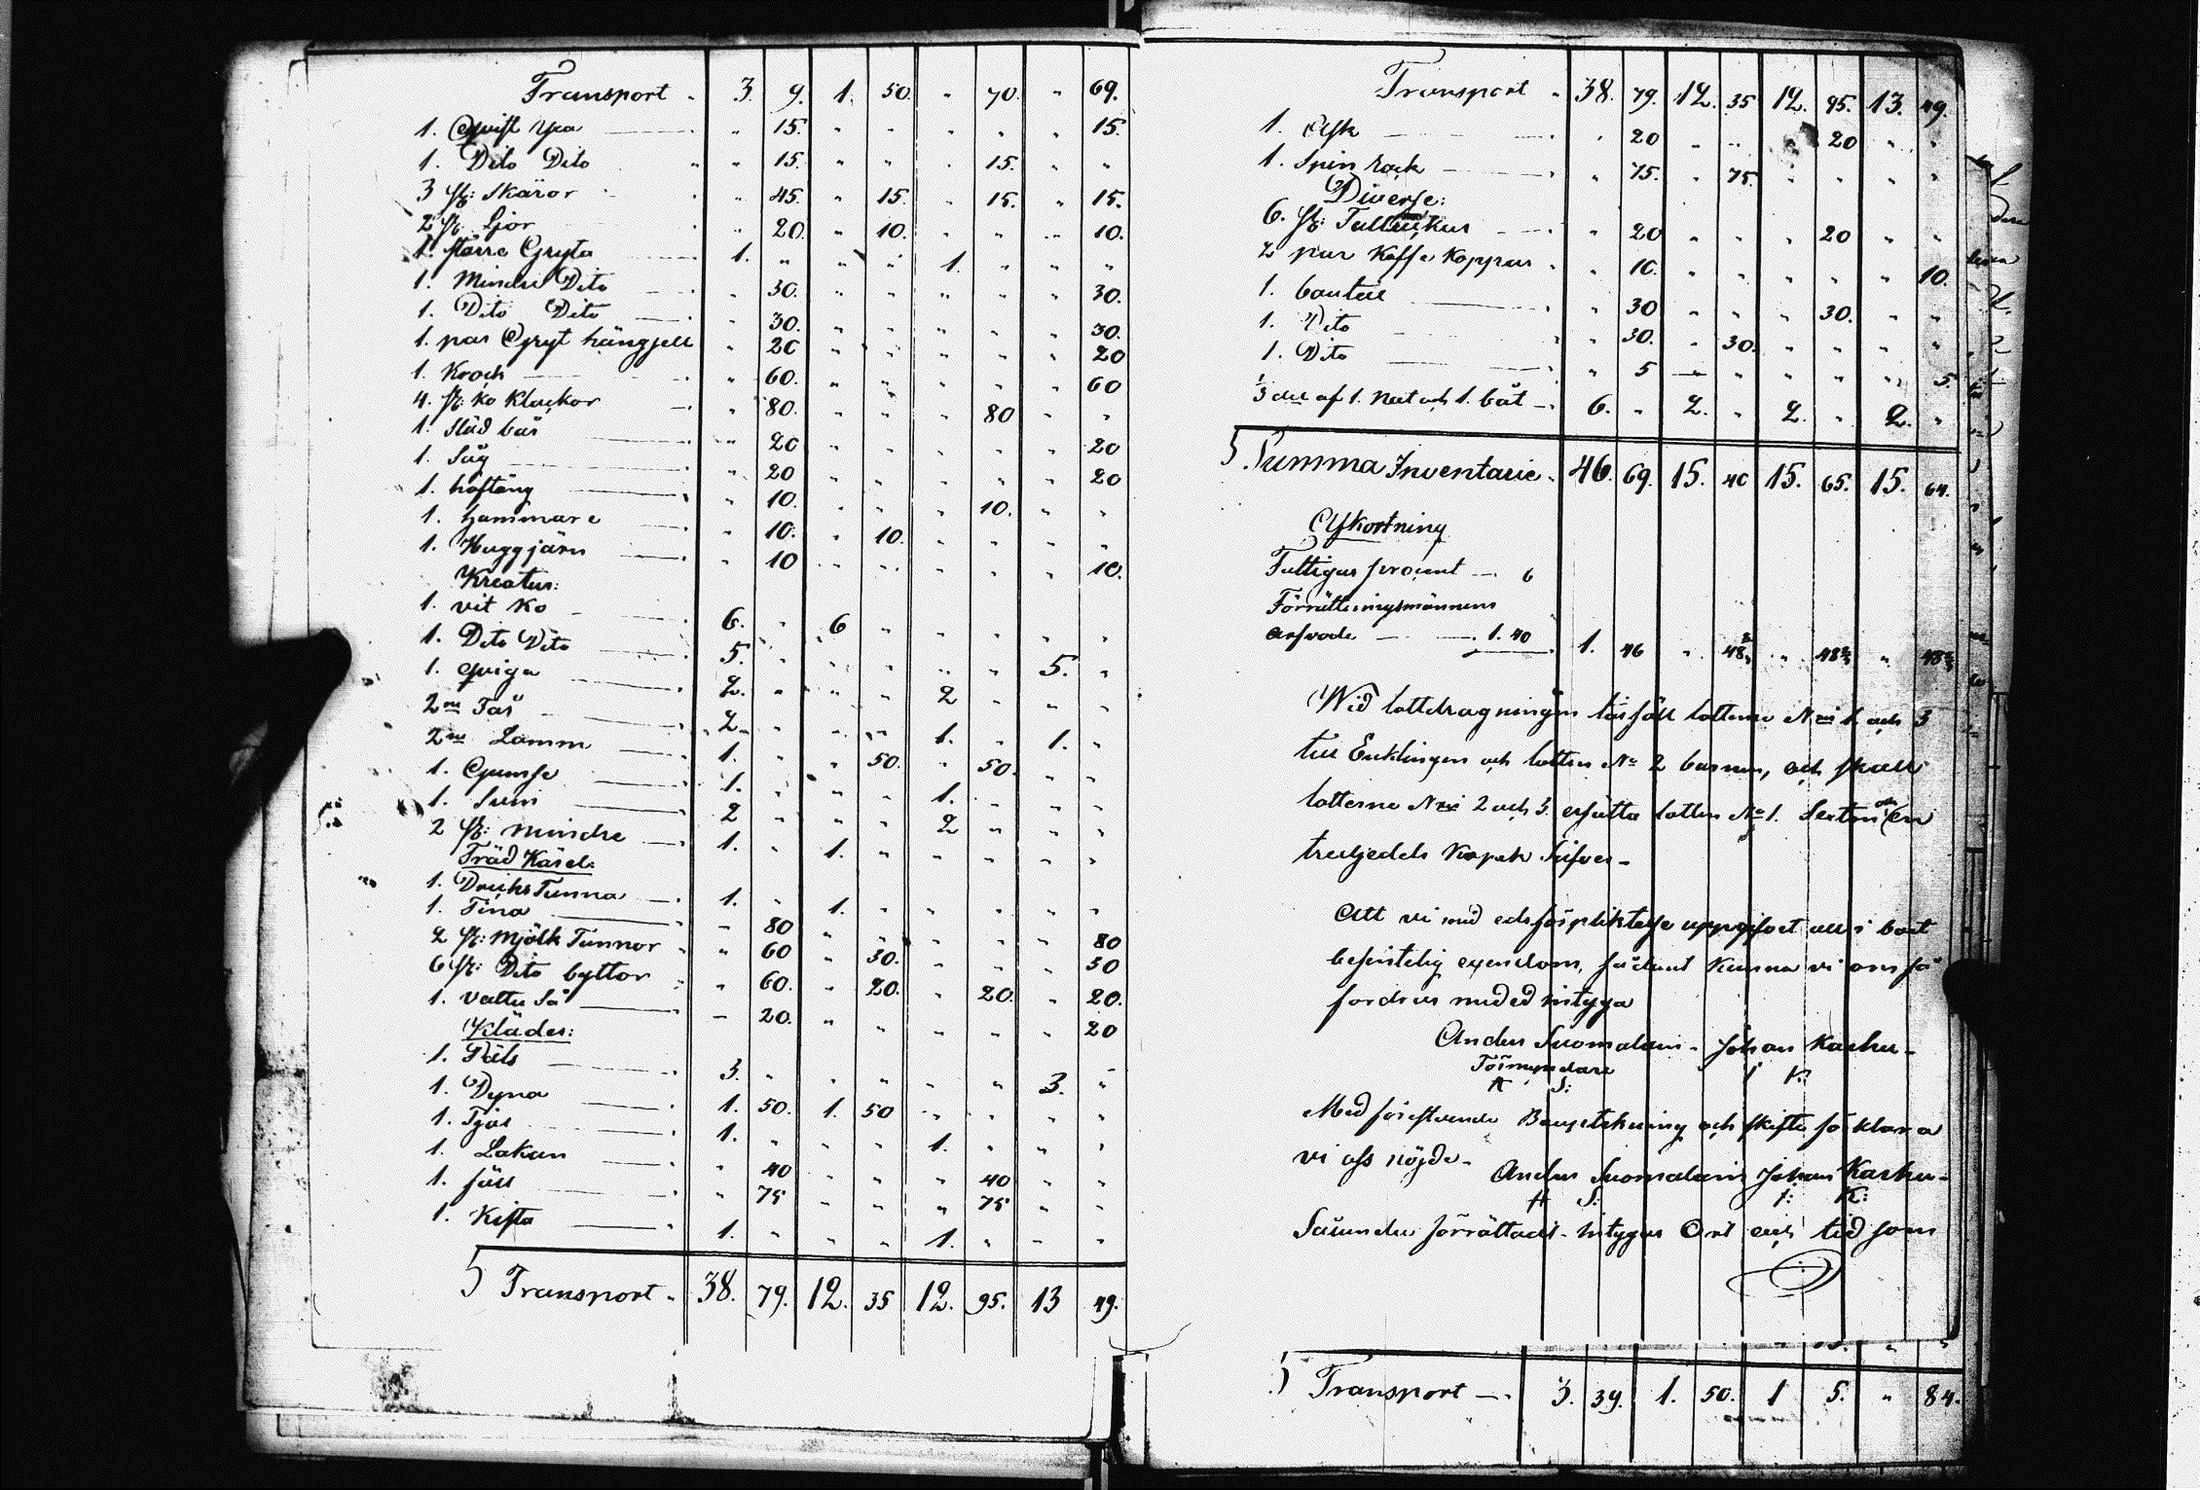 Transport - 3. 9. 1. 50. " 70. " 69.
1. Qvist Yxa " 15. " " " " " 15.
1. Dito Dito " 15. " " " 15. " "
3 st: Skäror " 45. " 15. " 15. " 15.
2 st. Ljor " 20. " 10. " " " 10.
1. större Gryta 1. " " " 1. " " "
1. Mindre Dito " 30. " " " " " 30.
1. Dito Dito " 30. " " " " " 30.
1. par Gryt hängjell " 20 " " " " " 20
1. Kroch " 60. " " " " " 60
4. st: ko klackor " 80. " " " 80 " "
1. Släd " 20 " " " " " 20
1. Såg " 20 " " " " " 20
1. hoftång " 10. " " " 10. " "
1. hammare " 10. " 10. " " " "
1. Huggjärn " 10 " " " " " 10.
Kreatur:
1. vit Ko 6. " 6 " " " " "
1. Dito Dito 5. " " " " " 5. "
1. qviga 2. " " " 2 " " "
2ne Får 2 " " " 1. " 1. "
2ne Lamm 1. " " 50. " 50. " "
1. Gumse 1. " " " 1. " " "
1. Svin 2 " " " 2 " " "
2 st: mindre 1. " 1. " " " " "
Träd Käril:
1. Dricks Tunna 1. " 1. " " " " "
1. Tina " 80 " " " " " 80
2 st: Mjölk Tunnor " 60 " 30. " " " 30
6 st: Dito byttor " 60. " 20. " 20. " 20.
1. vattu Så " 20. " " " " " 20
Kläder:
1. Päls 3. " " " " " 3. "
1. Dyna 1. 50. 1. 50 " " " "
1. 1. " " " 1. " " "
1. Lakan " 40 " " " 40 " "
1. fäll " 75 " " " 75 " "
1. Kista 1. " " " 1. " " "
Transport - 38. 79. 12. 35 12. 95. 13 49.
Transport - 38. 79. 12. 35 12. 95. 13. 49.
1. Ask " 20 " " " 20 " "
1. Spin rock " 75. " 75. " " " "
Diverse:
6. st: Tallrikar " 20 " " " 20 " "
2 par Kaffe koppar " 10. " " " " " 10.
1. bouteil " 30 " " " 30. " "
1. Dito " 30. " 30. " " " "
1. Dito " 5 " " " " " 5.
1/3 del af 1. Not och 1. båt 6. " 2. " 2. " 2. "
Summa Inventarie 46. 69. 15. 40 15. 65. 15. 64.
Afkortning
Fattigas procent 6
Förrättningsmännens
arfvode 1.40 1. 46 " 48 2/3 " 48 2/3 " 48 2/3
Wid lottdragningen lotterne 1 och 3
till Enklingen och lotten No 2 barnen, och skall
lotterne 2 och 3. ersätta lotten No 1. Sexton och en
tredjedels Kopek Silfver -
Att vi med eds förpliktelse uppgifvet all i boet
befintelig egendom, sådant kunna vi om så
fordras med ed intyga
Anders Suomalain - Johan Karhu -
Förmyndare
A S: J K:
Med föreståendе Bouptekning och skifte förklara
vi oss nöjde - Anders Suomalain Johan Karhu -
A S: J: K:
Sålunda förrättadt - intygar Ort och tid som
Transport 3. 39. 1. 50. 1 5. " 84.